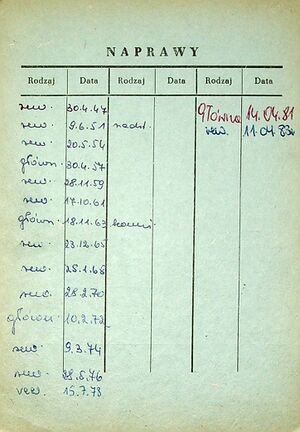 NAPRAWY
Rodzaj Data Rodzaj Data Rodzaj Data
rew. 30.4.47 Główna 14.04.81
rew. 9.6.51 rew. 11.04.83
rew. 20.5.54
główn. 30.4.57
rew. 28.11.59
rew. 17.10.61
główn. 18.11.63
rew. 23.12.65
rew. 25.1.68
rew. 28.2.70
główn. 10.2.72
rew. 9.3.74
rew. 28.5.76
rew. 15.7.78